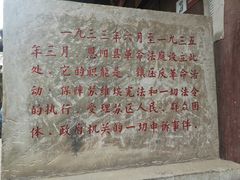 一九三三年六月至一九三五
年三月,恩阳县革命法庭设立此
处。它的职能是:镇压反革命活
动;保障苏维埃宪法和一切法令
的执行;受理苏区人民、群众团
体、政府机关的一切申诉事件。